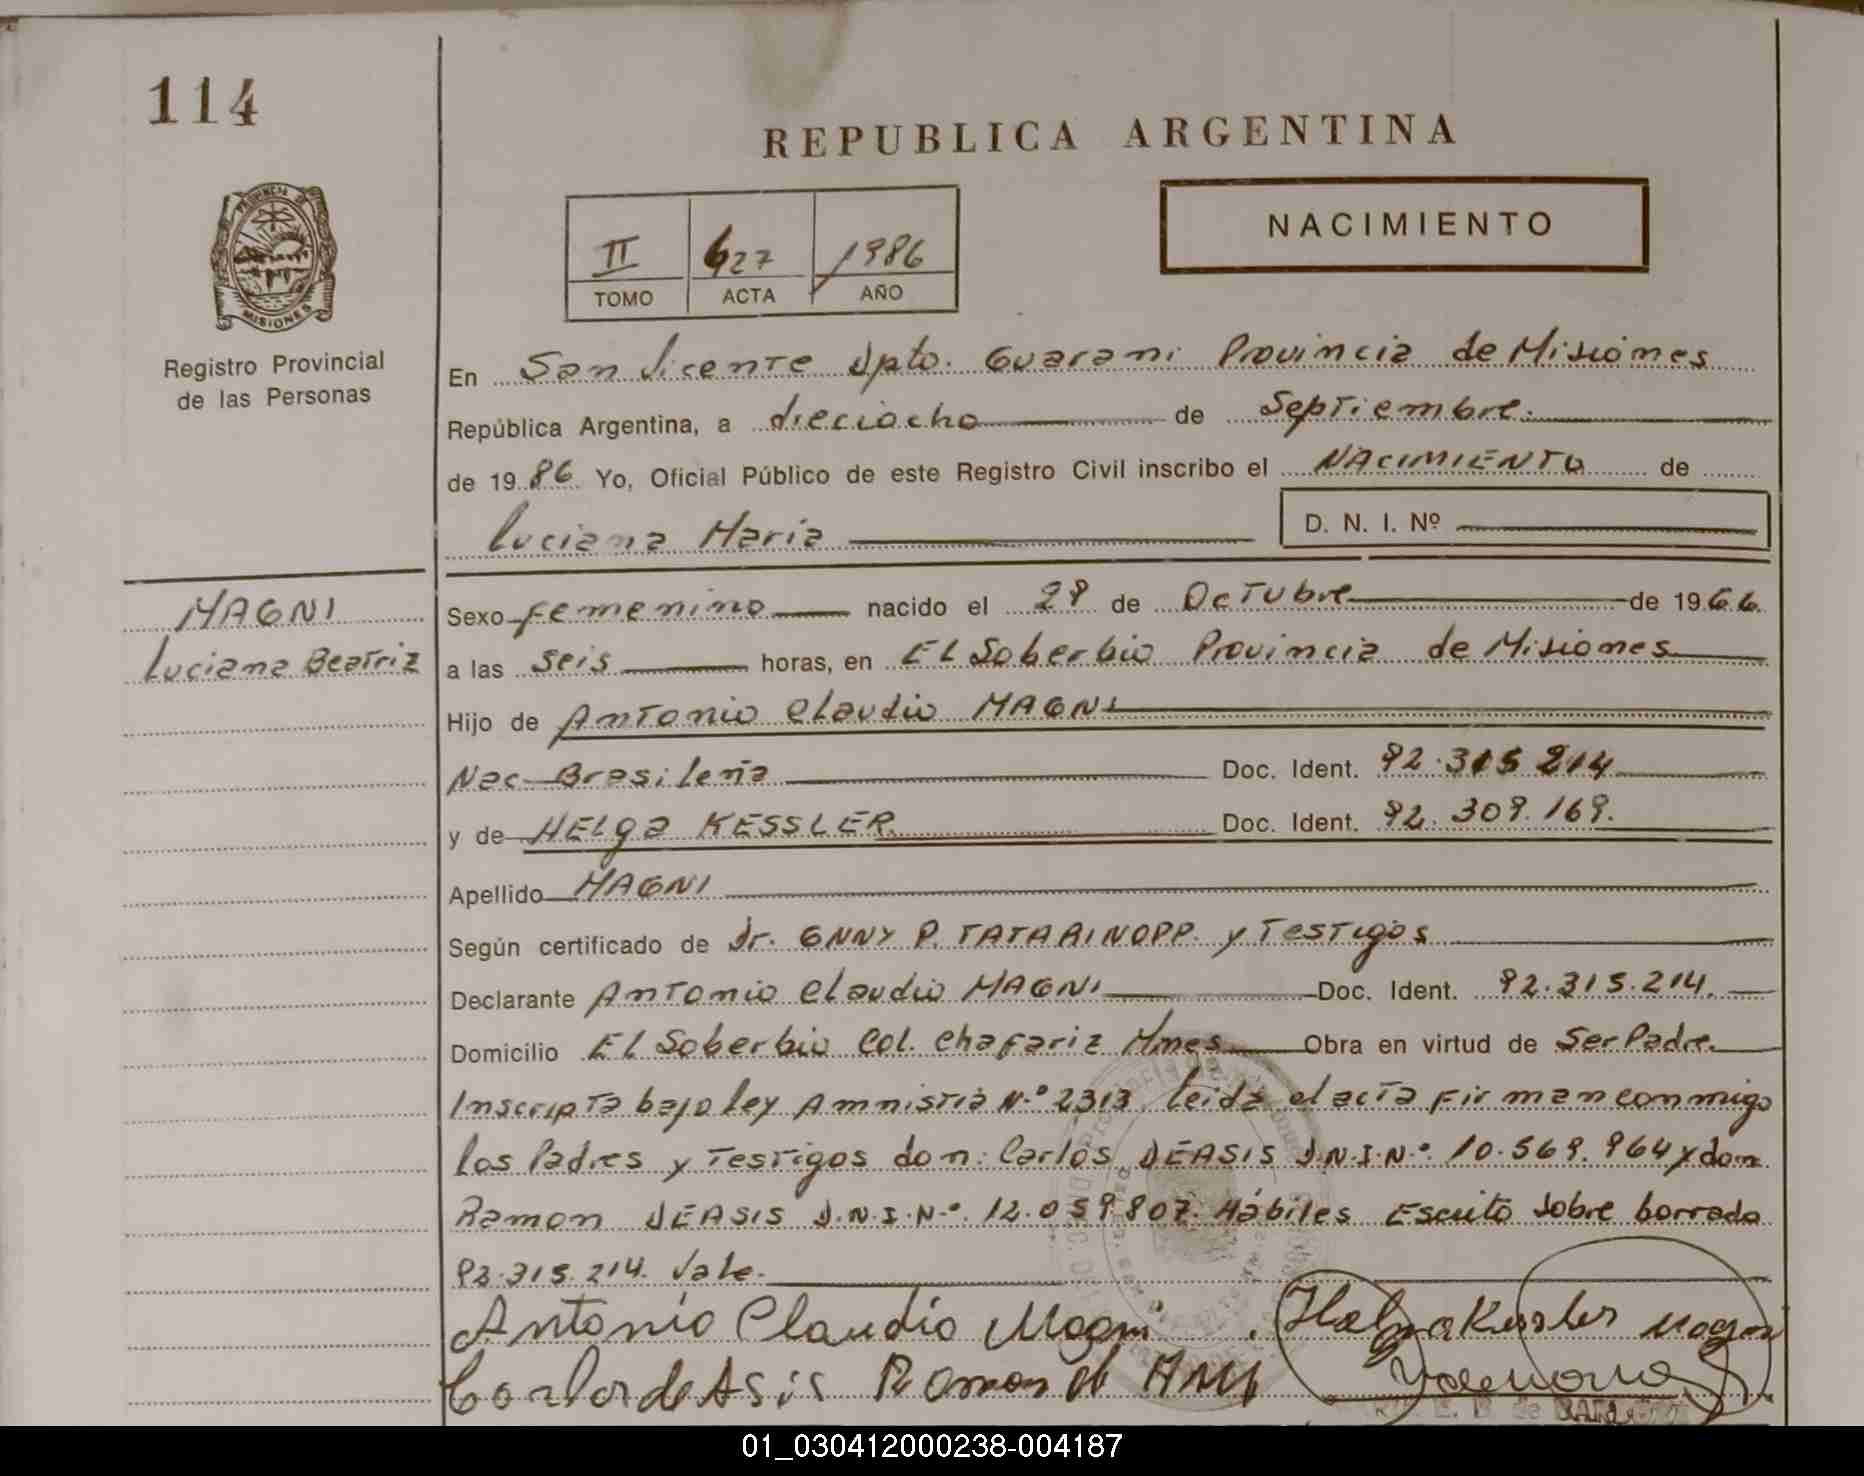 114
REPUBLICA ARGENTINA
PROVINCIA DE
MISIONES
II 627 1986
TOMO ACTA AÑO
NACIMIENTO
Registro Provincial
de las Personas
En San Vicente Dpto. Guarani Provincia de Misiones
República Argentina, a dieciocho de Septiembre.
de 1986. Yo, Oficial Público de este Registro Civil inscribo el NACIMIENTO de
Luciana Maria D. N. I. Nº
MAGNI
Luciana Beatriz
Sexo femenino nacido el 28 de Octubre de 1966.
a las seis horas, en El Soberbio Provincia de Misiones
Hijo de Antonio Claudio MAGNI
Nac Brasileña Doc. Ident. 92.315 214
y de HELga KESSLER Doc. Ident. 92.309.169.
Apellido MAGNI
Según certificado de Dr. ENNY P. y Testigos
Declarante Antonio Claudio MAGNI Doc. Ident. 92.315.214.
Domicilio El Soberbio Col. Chafariz Mnes Obra en virtud de Ser Padre.
Inscripta bajo ley Amnistia N.º 2313. Leida el acta Firman conmigo
los Padres y Testigos don: Carlos DEASIS D.N.I.N.º 10.569.964 y don
Ramon DEASIS D.N.I.N.º 12.059.807. Hábiles Escrito sobre borrado
92.315.214. Vale.
Antonio Claudio Magni Helga Kessler Magni
Carlos de Asis Ramon de
01_030412000238-004187